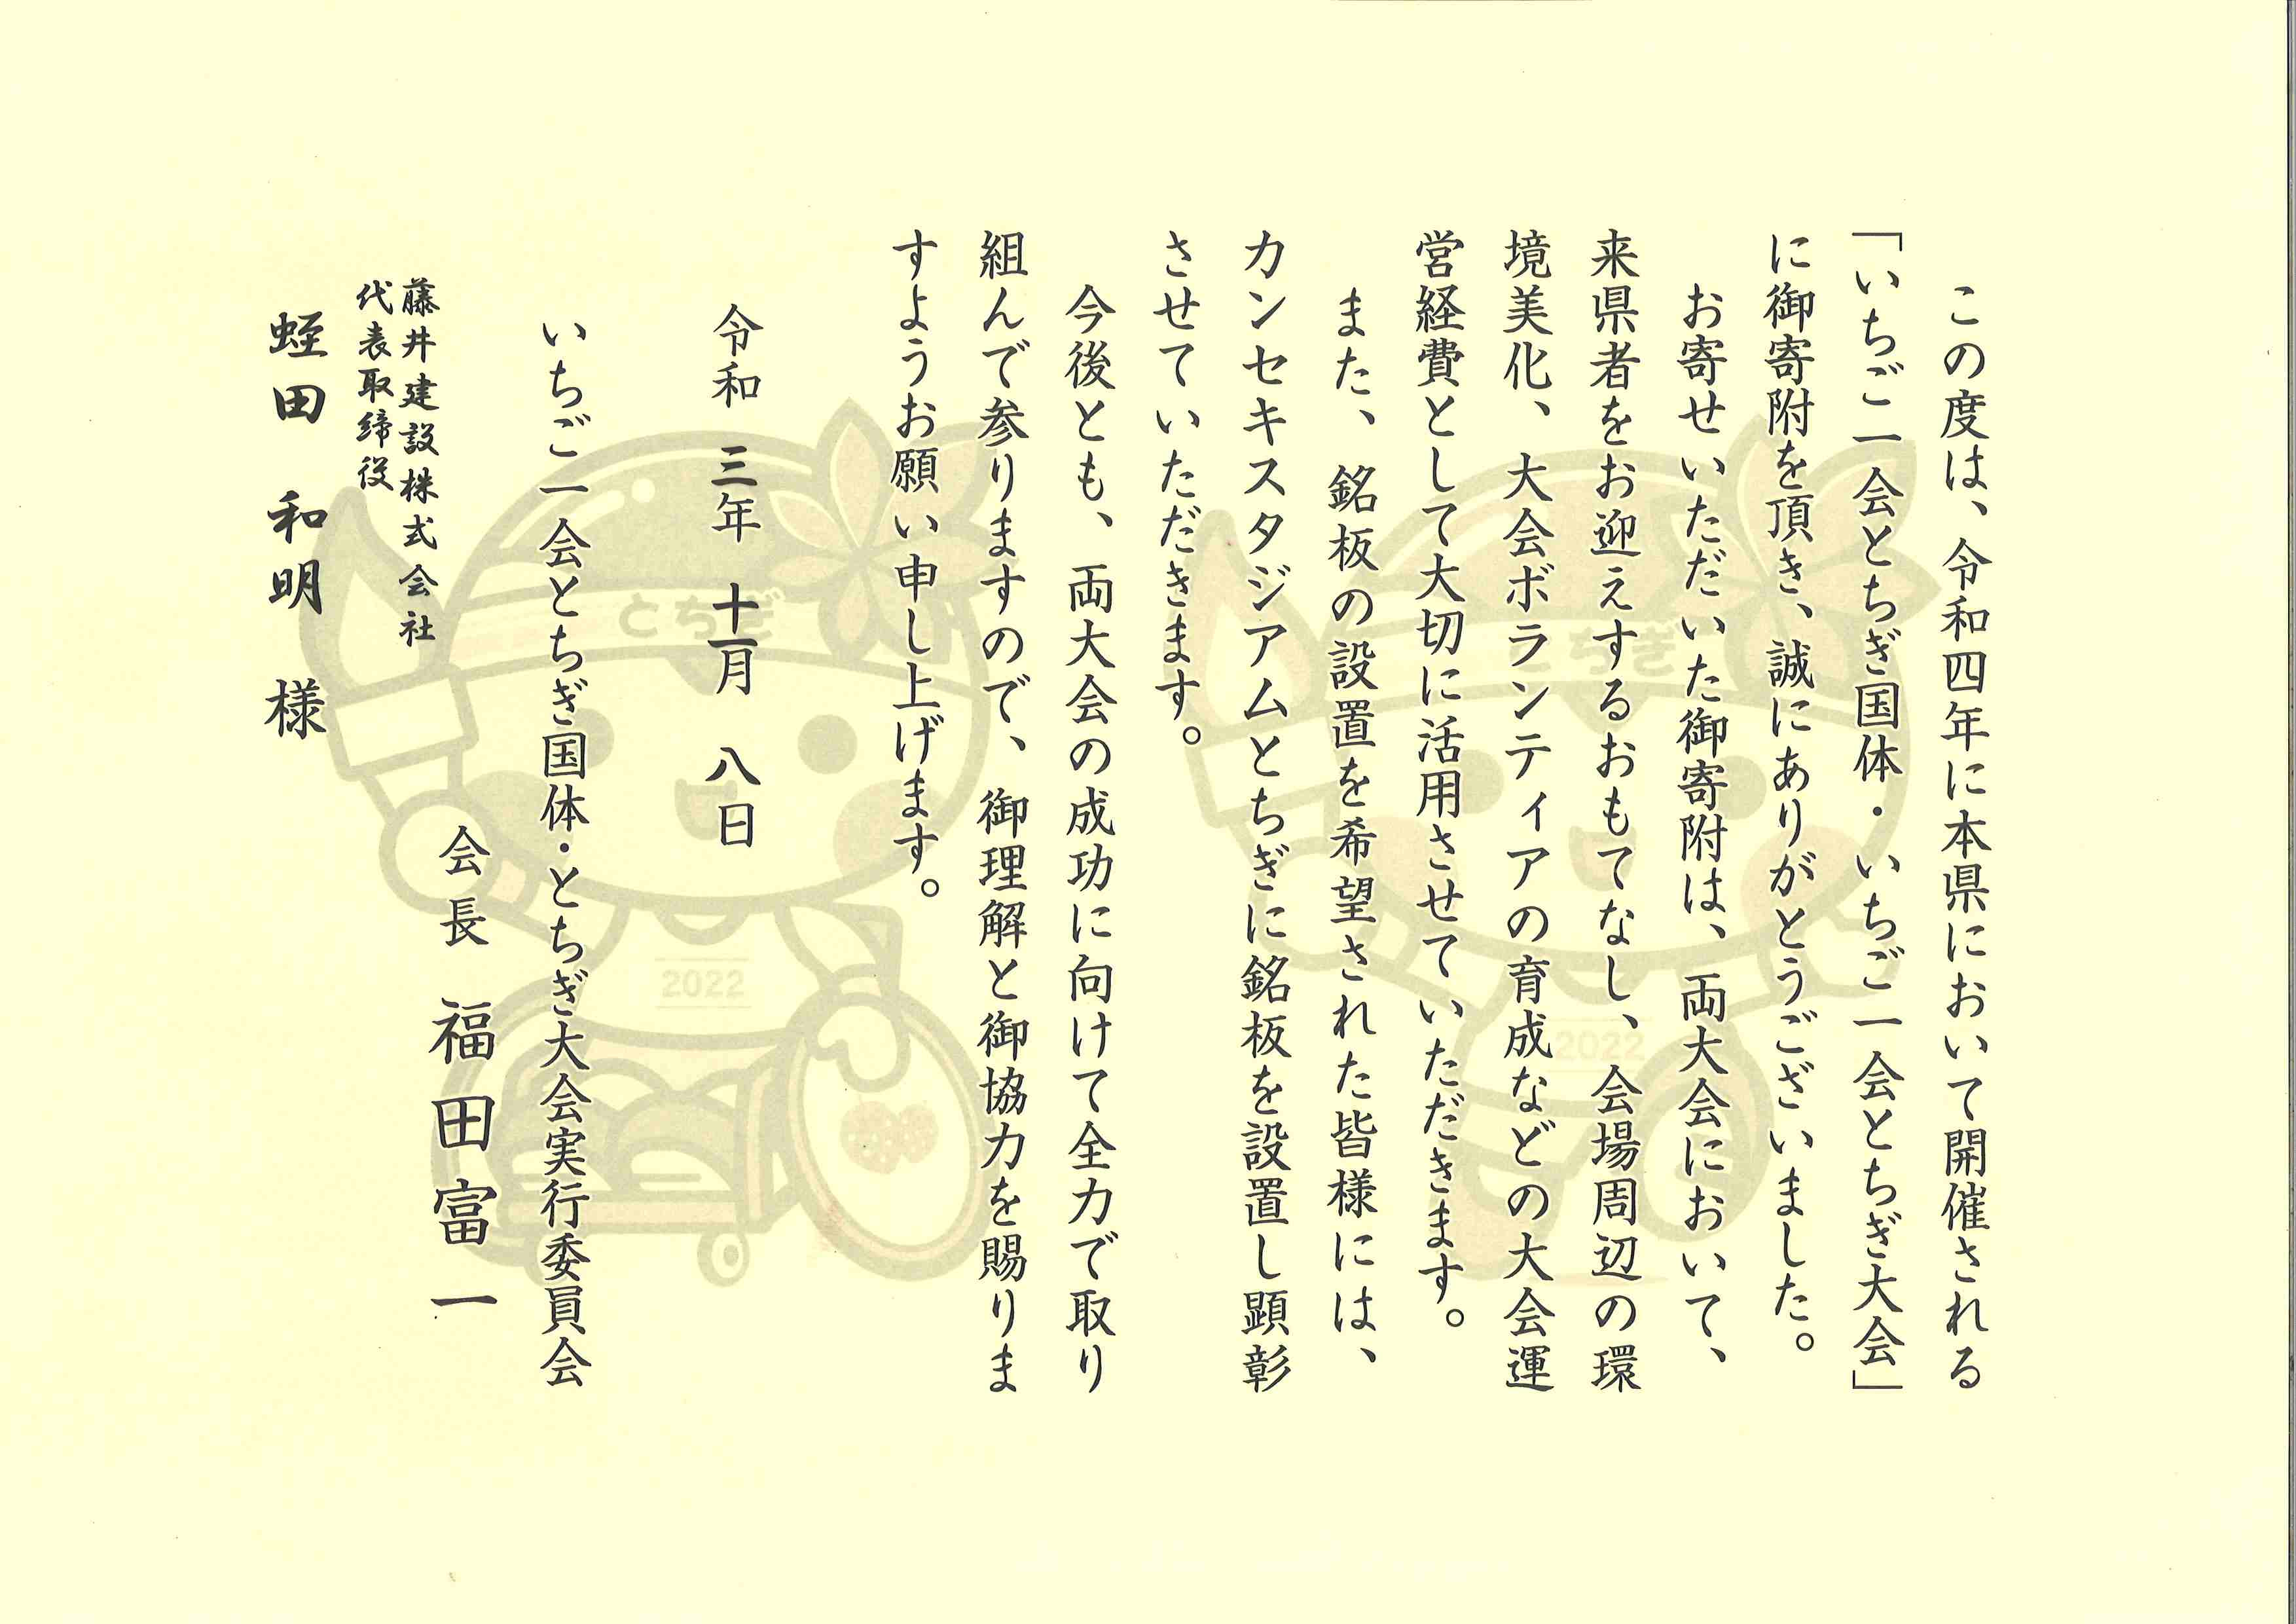 この度は、令和四年に本県において開催される
「いちご一会とちぎ国体・いちご一会とちぎ大会」
に御寄附を頂き、誠にありがとうございました。
お寄せいただいた御寄附は、両大会において、
来県者をお迎えするおもてなし、会場周辺の環
境美化、大会ボランティアの育成などの大会運
営経費として大切に活用させていただきます。
また、銘板の設置を希望された皆様には、
カンセキスタジアムとちぎに銘板を設置し顕彰
させていただきます。
今後とも、両大会の成功に向けて全力で取り
組んで参りますので、御理解と御協力を賜りま
すようお願い申し上げます。
令和 三年 十一月 八日
いちご一会とちぎ国体・とちぎ大会実行委員会
会長 福田富一
藤井建設株式会社
代表取締役
蛭田 和明 様
とちぎ
2022
とちぎ
2022